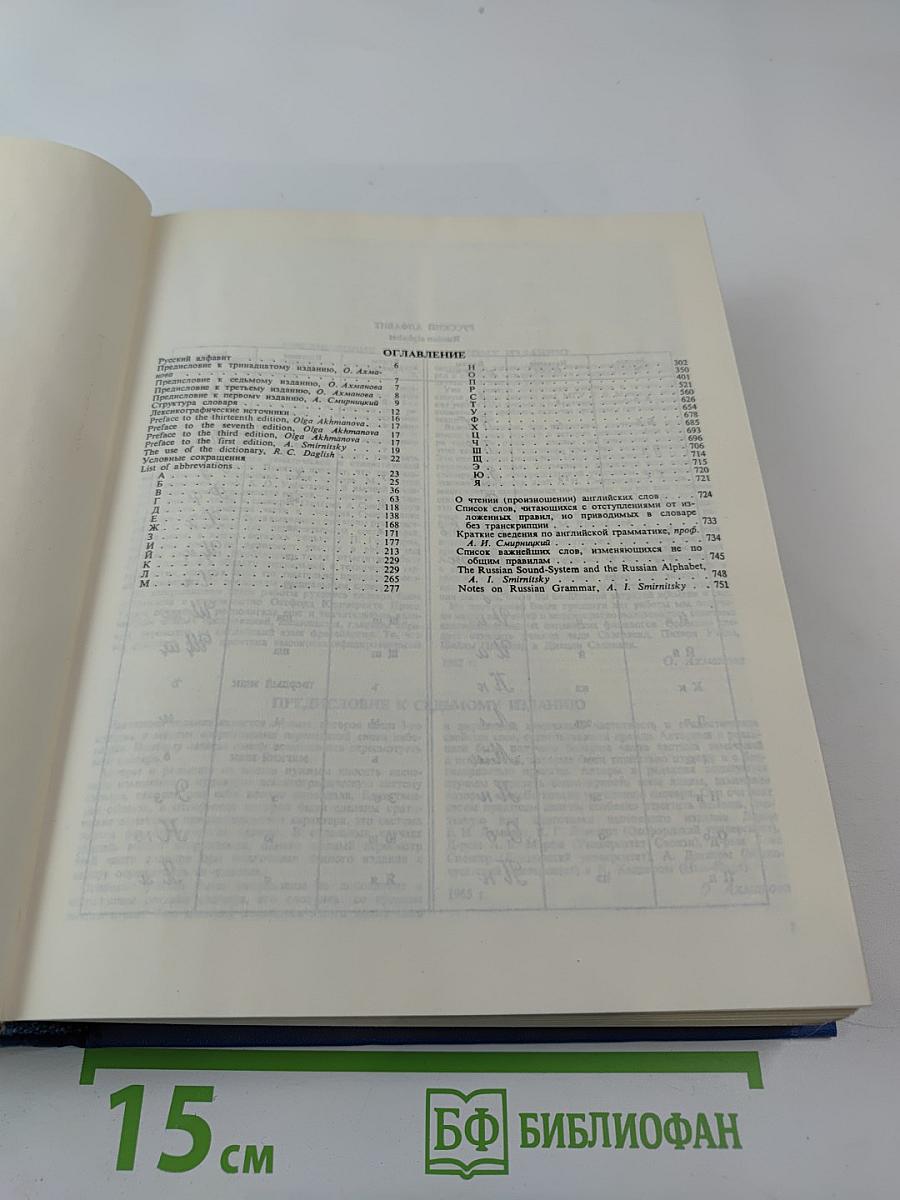 ОГЛАВЛЕНИЕ
Русский алфавит . . . . . . . . . . . . . 6
Предисловие к тринадцатому изданию, О. Ахма-
нова . . . . . . . . . . . . . 7
Предисловие к седьмому изданию, О. Ахманова 7
Предисловие к третьему изданию, О. Ахманова . 8
Предисловие к первому изданию, А. Смирницкий 9
Структура словаря . . . . . . . . . . . . . 12
Лексикографические источники . . . . . . . . . 16
Preface to the thirteenth edition, Olga Akhmanova . . 17
Preface to the seventh edition, Olga Akhmanova 17
Preface to the third edition, Olga Akhmanova . . 17
Preface to the first edition, A. Smirnitsky . . . 19
The use of the dictionary, R. C. Daglish . . . . 22
Условные сокращения
List of abbreviations . . . . . . . . . . . . . 23
А . . . . . . . . . . . . . 25
Б . . . . . . . . . . . . . 36
В . . . . . . . . . . . . . 63
Г . . . . . . . . . . . . . 118
Д . . . . . . . . . . . . . 138
Е . . . . . . . . . . . . . 168
Ж . . . . . . . . . . . . . 171
З . . . . . . . . . . . . . 177
И . . . . . . . . . . . . . 213
Й . . . . . . . . . . . . . 229
К . . . . . . . . . . . . . 229
Л . . . . . . . . . . . . . 265
М . . . . . . . . . . . . . 277
Н . . . . . . . . . . . . . 302
О . . . . . . . . . . . . . 350
П . . . . . . . . . . . . . 401
Р . . . . . . . . . . . . . 521
С . . . . . . . . . . . . . 560
Т . . . . . . . . . . . . . 626
У . . . . . . . . . . . . . 654
Ф . . . . . . . . . . . . . 678
Х . . . . . . . . . . . . . 685
Ц . . . . . . . . . . . . . 693
Ч . . . . . . . . . . . . . 696
Ш . . . . . . . . . . . . . 706
Щ . . . . . . . . . . . . . 714
Э . . . . . . . . . . . . . 715
Ю . . . . . . . . . . . . . 720
Я . . . . . . . . . . . . . 721
О чтении (произношении) английских слов . . . . 724
Список слов, читающихся с отступлениями от из-
ложенных правил, но приводимых в словаре
без транскрипции . . . . . . . . . . . . . 733
Краткие сведения по английской грамматике, проф.
А. И. Смирницкий . . . . . . . . . . . . . 734
Список важнейших слов, изменяющихся не по
общим правилам . . . . . . . . . . . . . 745
The Russian Sound-System and the Russian Alphabet,
A. I. Smirnitsky . . . . . . . . . . . . . 748
Notes on Russian Grammar, A. I. Smirnitsky . . 751
15 см
БФ БИБЛИОФАН